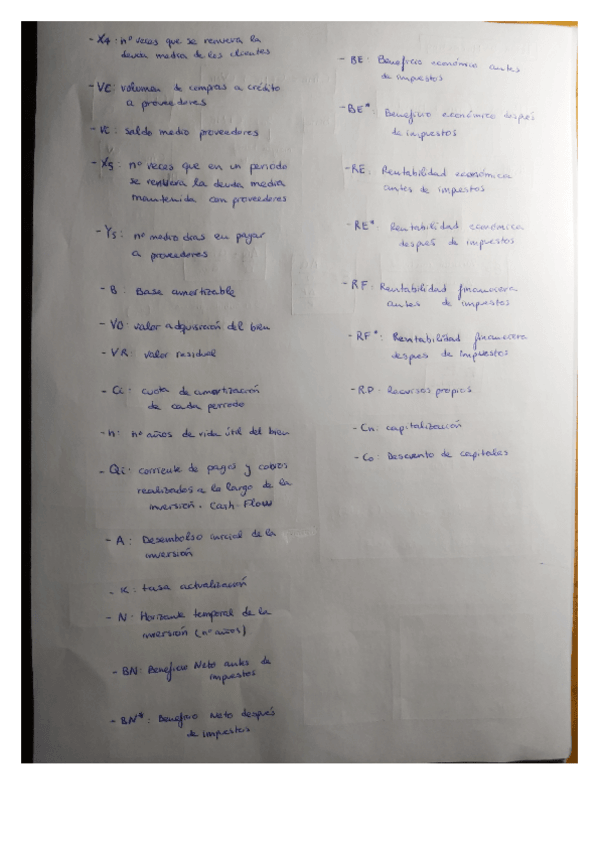 - X4: nº veces que se renueva la
deuda media de los clientes
- VC: volumen de compras a crédito
a proveedores
- VC: saldo medio proveedores
- X5: nº veces que en un periodo
se renueva la deuda media
mantenida con proveedores
- Y5: nº medio días en pagar
a proveedores
- B: Base amortizable
- VO: valor adquisición del bien
- VR: valor residual
- Ci: cuota de amortización
de cada periodo
- n: nº años de vida útil del bien
- Qi: corriente de pagos y cobros
realizados a lo largo de la
inversión. Cash-Flow
- A: Desembolso inicial de la
inversión
- K: tasa actualización
- N: Horizonte temporal de la
inversión (nº años)
- BN: Beneficio Neto antes de
impuestos
- BN*: Beneficio Neto después
de impuestos
- BE: Beneficio económico antes
de impuestos
- BE*: Beneficio económico después
de impuestos
- RE: Rentabilidad económica
antes de impuestos
- RE*: Rentabilidad económica
después de impuestos
- RF: Rentabilidad financiera
antes de impuestos
- RF*: Rentabilidad financiera
después de impuestos
- RP: Recursos propios
- Cn: capitalización
- Co: Descuento de capitales